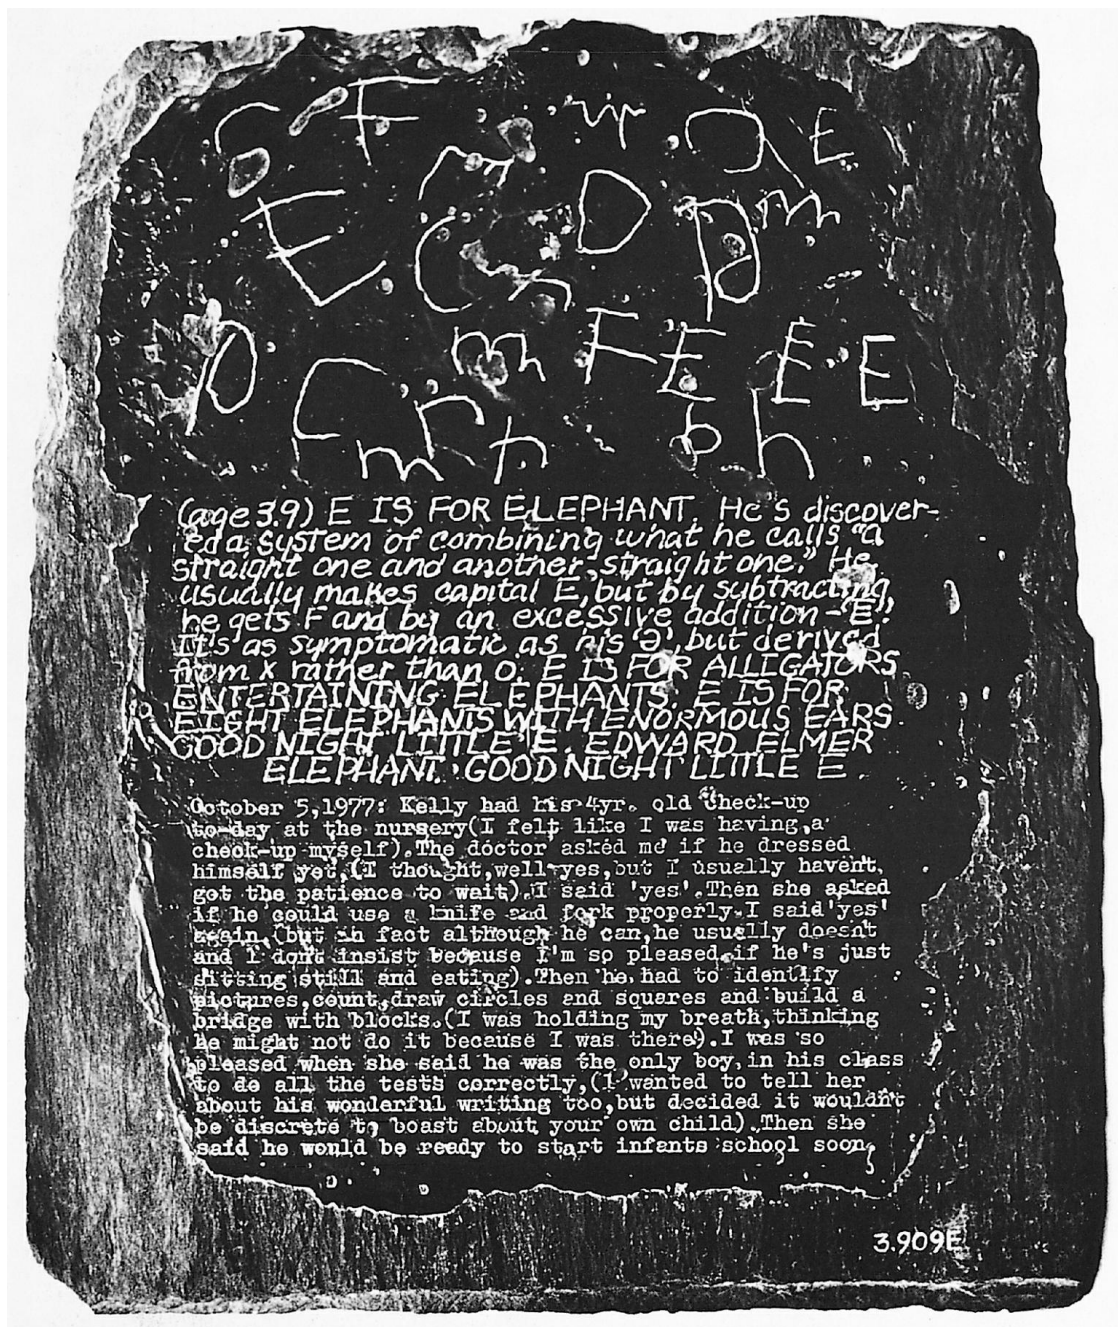 S F m a E
E C D p m
p C m F E E E
r m h b h
(age 3.9) E IS FOR ELEPHANT. He's discover-
ed a system of combining what he calls "a
straight one and another straight one." He
usually makes capital E, but by subtracting
he gets F and by an excessive addition - 'E'.
It's as symptomatic as his 'ə', but derived
from x rather than o. E IS FOR ALLIGATORS
ENTERTAINING ELEPHANTS. E IS FOR
EIGHT ELEPHANTS WITH ENORMOUS EARS
GOOD NIGHT LITTLE E. EDWARD ELMER
ELEPHANT. GOOD NIGHT LITTLE E.
October 5,1977: Kelly had his 4yr. old check-up
to-day at the nursery(I felt like I was having a
check-up myself).The doctor asked me if he dressed
himself yet,(I thought,well yes,but I usually havent
got the patience to wait).I said 'yes'.Then she asked
if he could use a knife and fork properly.I said'yes'
again,(but in fact although he can,he usually doesn't
and I dont insist because I'm so pleased if he's just
sitting still and eating).Then he had to identify
pictures,count,draw circles and squares and build a
bridge with blocks.(I was holding my breath,thinking
he might not do it because I was there).I was so
pleased when she said he was the only boy in his class
to do all the tests correctly,(I wanted to tell her
about his wonderful writing too,but decided it wouldn't
be discrete to boast about your own child).Then she
said he would be ready to start infants school soon.
3.909E